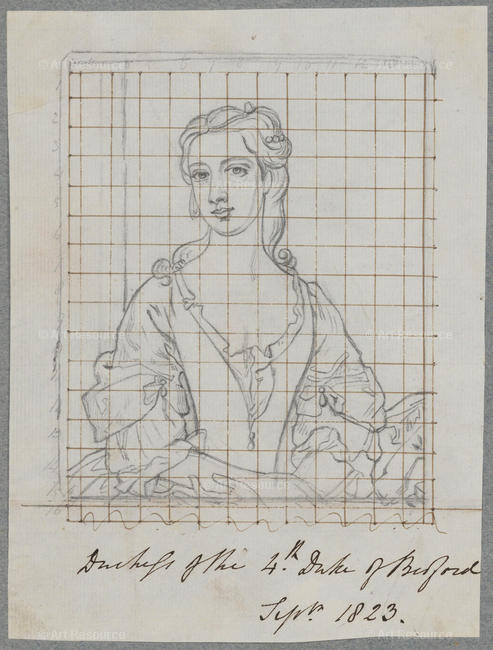 Duchess of the 4.th Duke of Bedford
Septr. 1823.
© Art Resource